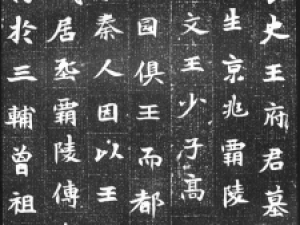 大王府君墓
生京兆霸陵
文王少子高
国俱王而都
秦人因以王
居霸陵傳
於三輔曾祖